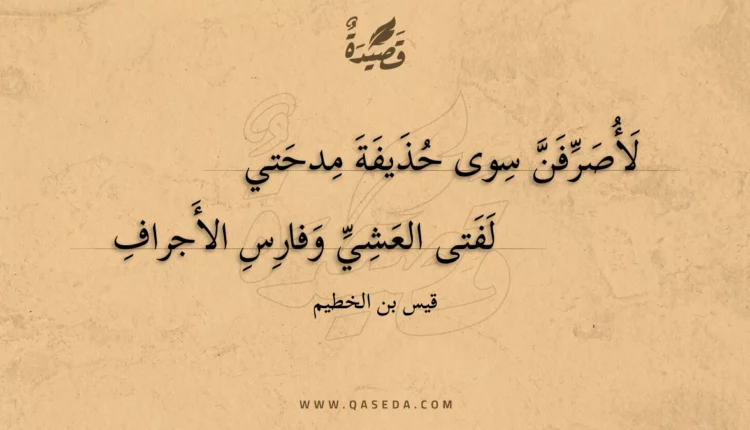 قَصِيدَةٌ
لَأُصَرِّفَنَّ سِوى حُذَيفَةَ مِدحَتي
لَفَتى العَشِيِّ وَفارِسِ الأَجرافِ
قيس بن الخطيم
WWW.QASEDA.COM